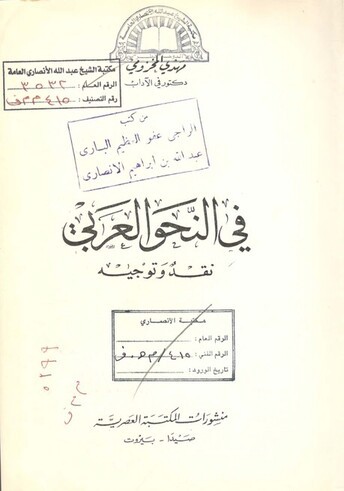 مهدي المخزومي
دكتور في الآداب
مكتبة الشيخ عبد الله الأنصاري العامة
الرقم العام : ٣٥٣٢
رقم التصنيف : ٤١٥
من كتب
الراجي عفو العظيم الباري
عبد الله بن ابراهيم الانصاري
في النحو العربي
نقد وتوجيه
مكتبة الانصاري
الرقم العام :
الرقم الفني : ٤١٥
تاريخ الورود :
منشورات المكتبة العصرية
صيدا - بيروت